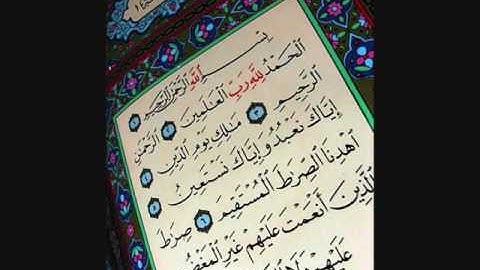 بِسْمِ اللَّهِ الرَّحْمَٰنِ الرَّحِيمِ ١
الْحَمْدُ لِلَّهِ رَبِّ الْعَٰلَمِينَ ٢ الرَّحْمَٰنِ
الرَّحِيمِ ٣ مَٰلِكِ يَوْمِ الدِّينِ ٤
إِيَّاكَ نَعْبُدُ وَإِيَّاكَ نَسْتَعِينُ ٥
اهْدِنَا الصِّرَٰطَ الْمُسْتَقِيمَ ٦ صِرَٰطَ
الَّذِينَ أَنْعَمْتَ عَلَيْهِمْ غَيْرِ
عَلَيْهِمْ